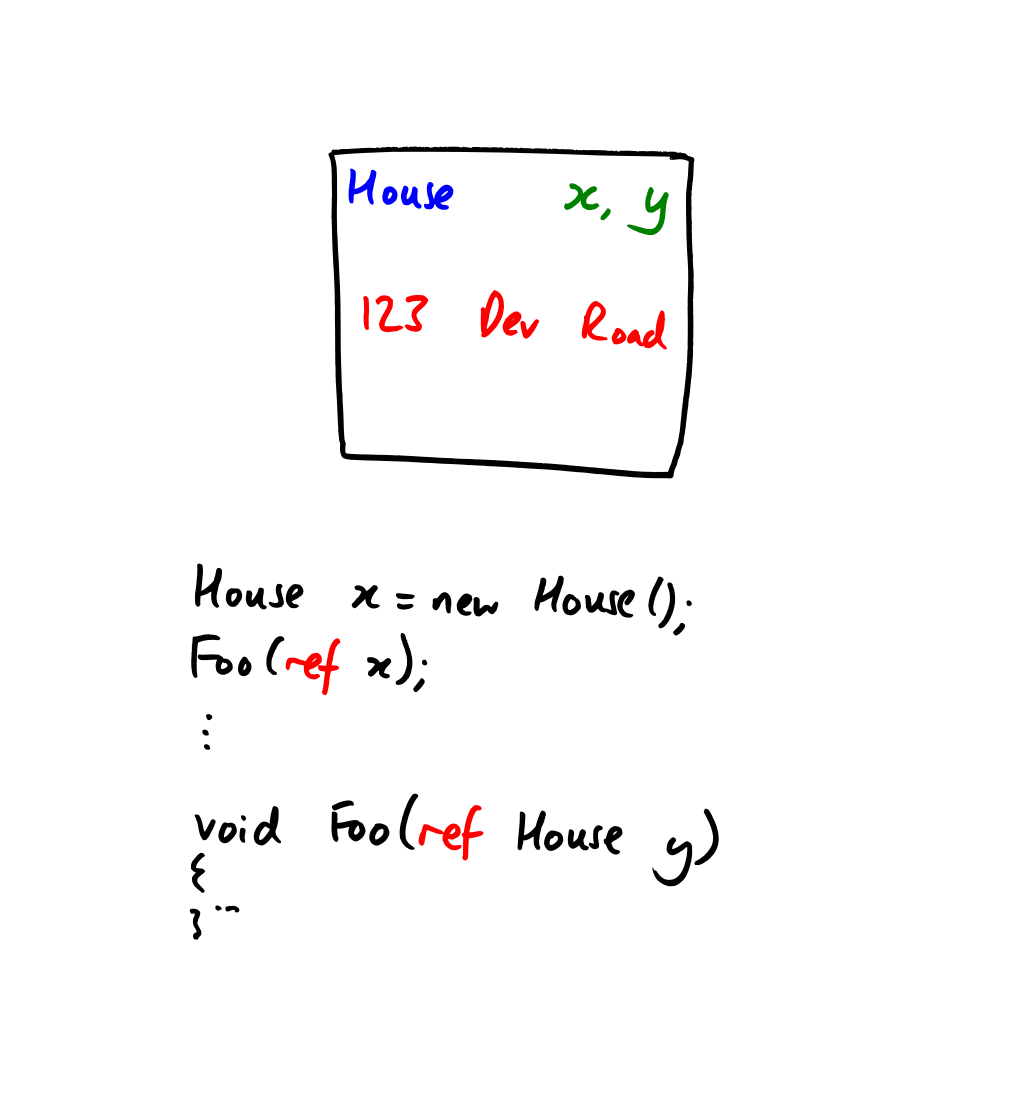 House x, y
123 Dev Road
House x = new House();
Foo(ref x);
⋮
void Foo(ref House y)
{
...
}